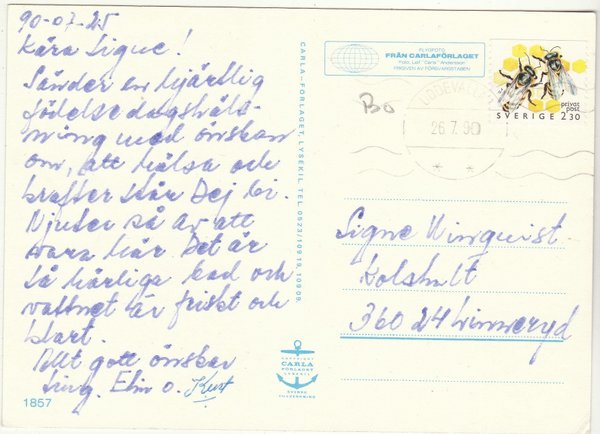 90-07-25
Kära Signe!
Sänder en hjärtlig
födelsedagshäls-
ning med önskan
om, att hälsa och
krafter står Dej bi.
Njuter så av att
vara här. Det är
så härliga bad och
vattnet är friskt och
klart.
Allt gott önskar
Elin o. Kurt
1857
CARLA-FÖRLAGET, LYSEKIL. TEL. 0523/10919, 10909.
FLYGFOTO
FRÅN CARLAFÖRLAGET
Foto: Leif "Carla" Andersson
FRIGIVEN AV FÖRSVARSSTABEN
Bo
UDDEVALLA
26.7.90
privat
post
SVERIGE 2.30
Signe Winquist
Kolshult
360 24 Linneryd
COPYRIGHT
CARLA
FÖRLAGET
LYSEKIL
SVENSK
TILLVERKNING